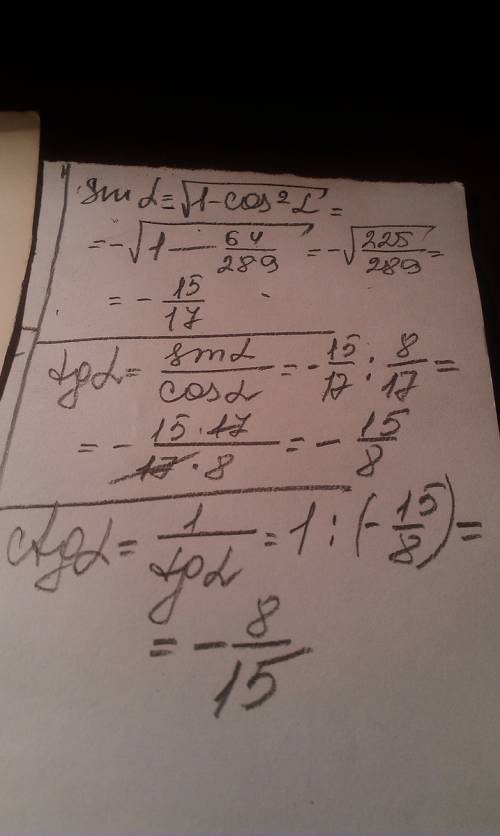 sin α = √1-cos²α =
= -√1 - 64/289 = -√225/289 =
= - 15/17
tg α = sin α/cos α = - 15/17 : 8/17 =
= - 15·17/17·8 = - 15/8
ctg α = 1/tg α = 1 : (- 15/8) =
= - 8/15